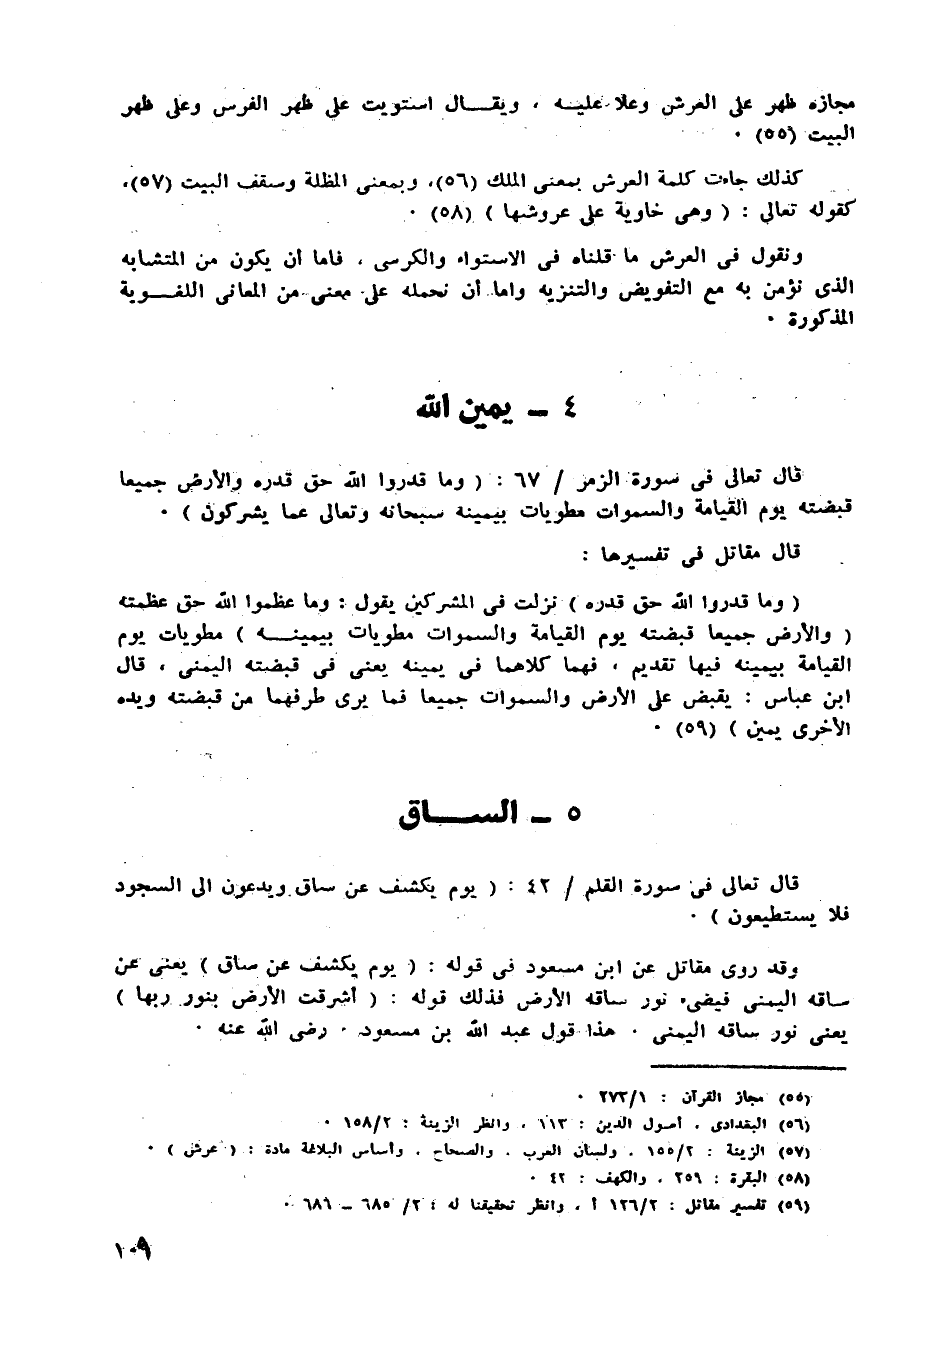 مجازه ظهر على العرش وعلا عليـــه ، ويقـــال استويت على ظهر الفرس وعلى ظهر
البيت (٥٥) ٠
كذلك جاءت كلمة العرش بمعنى الملك (٥٦)، وبمعنى المظلة وسقف البيت (٥٧)،
كقوله تعالى : ( وهى خاوية على عروشها ) (٥٨) ٠
ونقول فى العرش ما قلناه فى الاستواء والكرسى ، فاما أن يكون من المتشابه
الذى نؤمن به مع التفويض والتنزيه واما أن نحمله على معنى من المعانى اللغـــوية
المذكورة ٠
٤ ــ يمين الله
قال تعالى فى سورة الزمر / ٦٧ : ( وما قدروا الله حق قدره والأرض جميعا
قبضته يوم القيامة والسموات مطويات بيمينه سبحانه وتعالى عما يشركون ) ٠
قال مقاتل فى تفسيرها :
( وما قدروا الله حق قدره ) نزلت فى المشركين يقول : وما عظموا الله حق عظمته
( والأرض جميعا قبضته يوم القيامة والسموات مطويات بيمينـــه ) مطويات يوم
القيامة بيمينه فيها تقديم ، فهما كلاهما فى يمينه يعنى فى قبضته اليمنى ، قال
ابن عباس : يقبض على الأرض والسموات جميعا فما يرى طرفهما من قبضته ويده
الأخرى يمين ) (٥٩) ٠
٥ ــ الســـاق
قال تعالى فى سورة القلم / ٤٢ : ( يوم يكشف عن ساق ويدعون الى السجود
فلا يستطيعون ) ٠
وقد روى مقاتل عن ابن مسعود فى قوله : ( يوم يكشف عن ساق ) يعنى عن
ساقه اليمنى فيضىء نور ساقه الأرض فذلك قوله : ( أشرقت الأرض بنور ربها )
يعنى نور ساقه اليمنى ٠ هذا قول عبد الله بن مسعود ٠ رضى الله عنه ٠
(٥٥) مجاز القرآن : ٢٧٣/١ ٠
(٥٦) البغدادى ، أصول الدين : ١١٣ ، وانظر الزينة : ١٥٨/٢ ٠
(٥٧) الزينة : ١٥٥/٢ ، ولسان العرب ، والصحاح ، وأساس البلاغة مادة : ( عرش ) ٠
(٥٨) البقرة : ٢٥٩ ، والكهف : ٤٢ ٠
(٥٩) تفسير مقاتل : ١٢٦/٢ أ ، وانظر تحقيقنا له : ٣/ ٦٨٥ ــ ٦٨٦ ٠
١٠٩